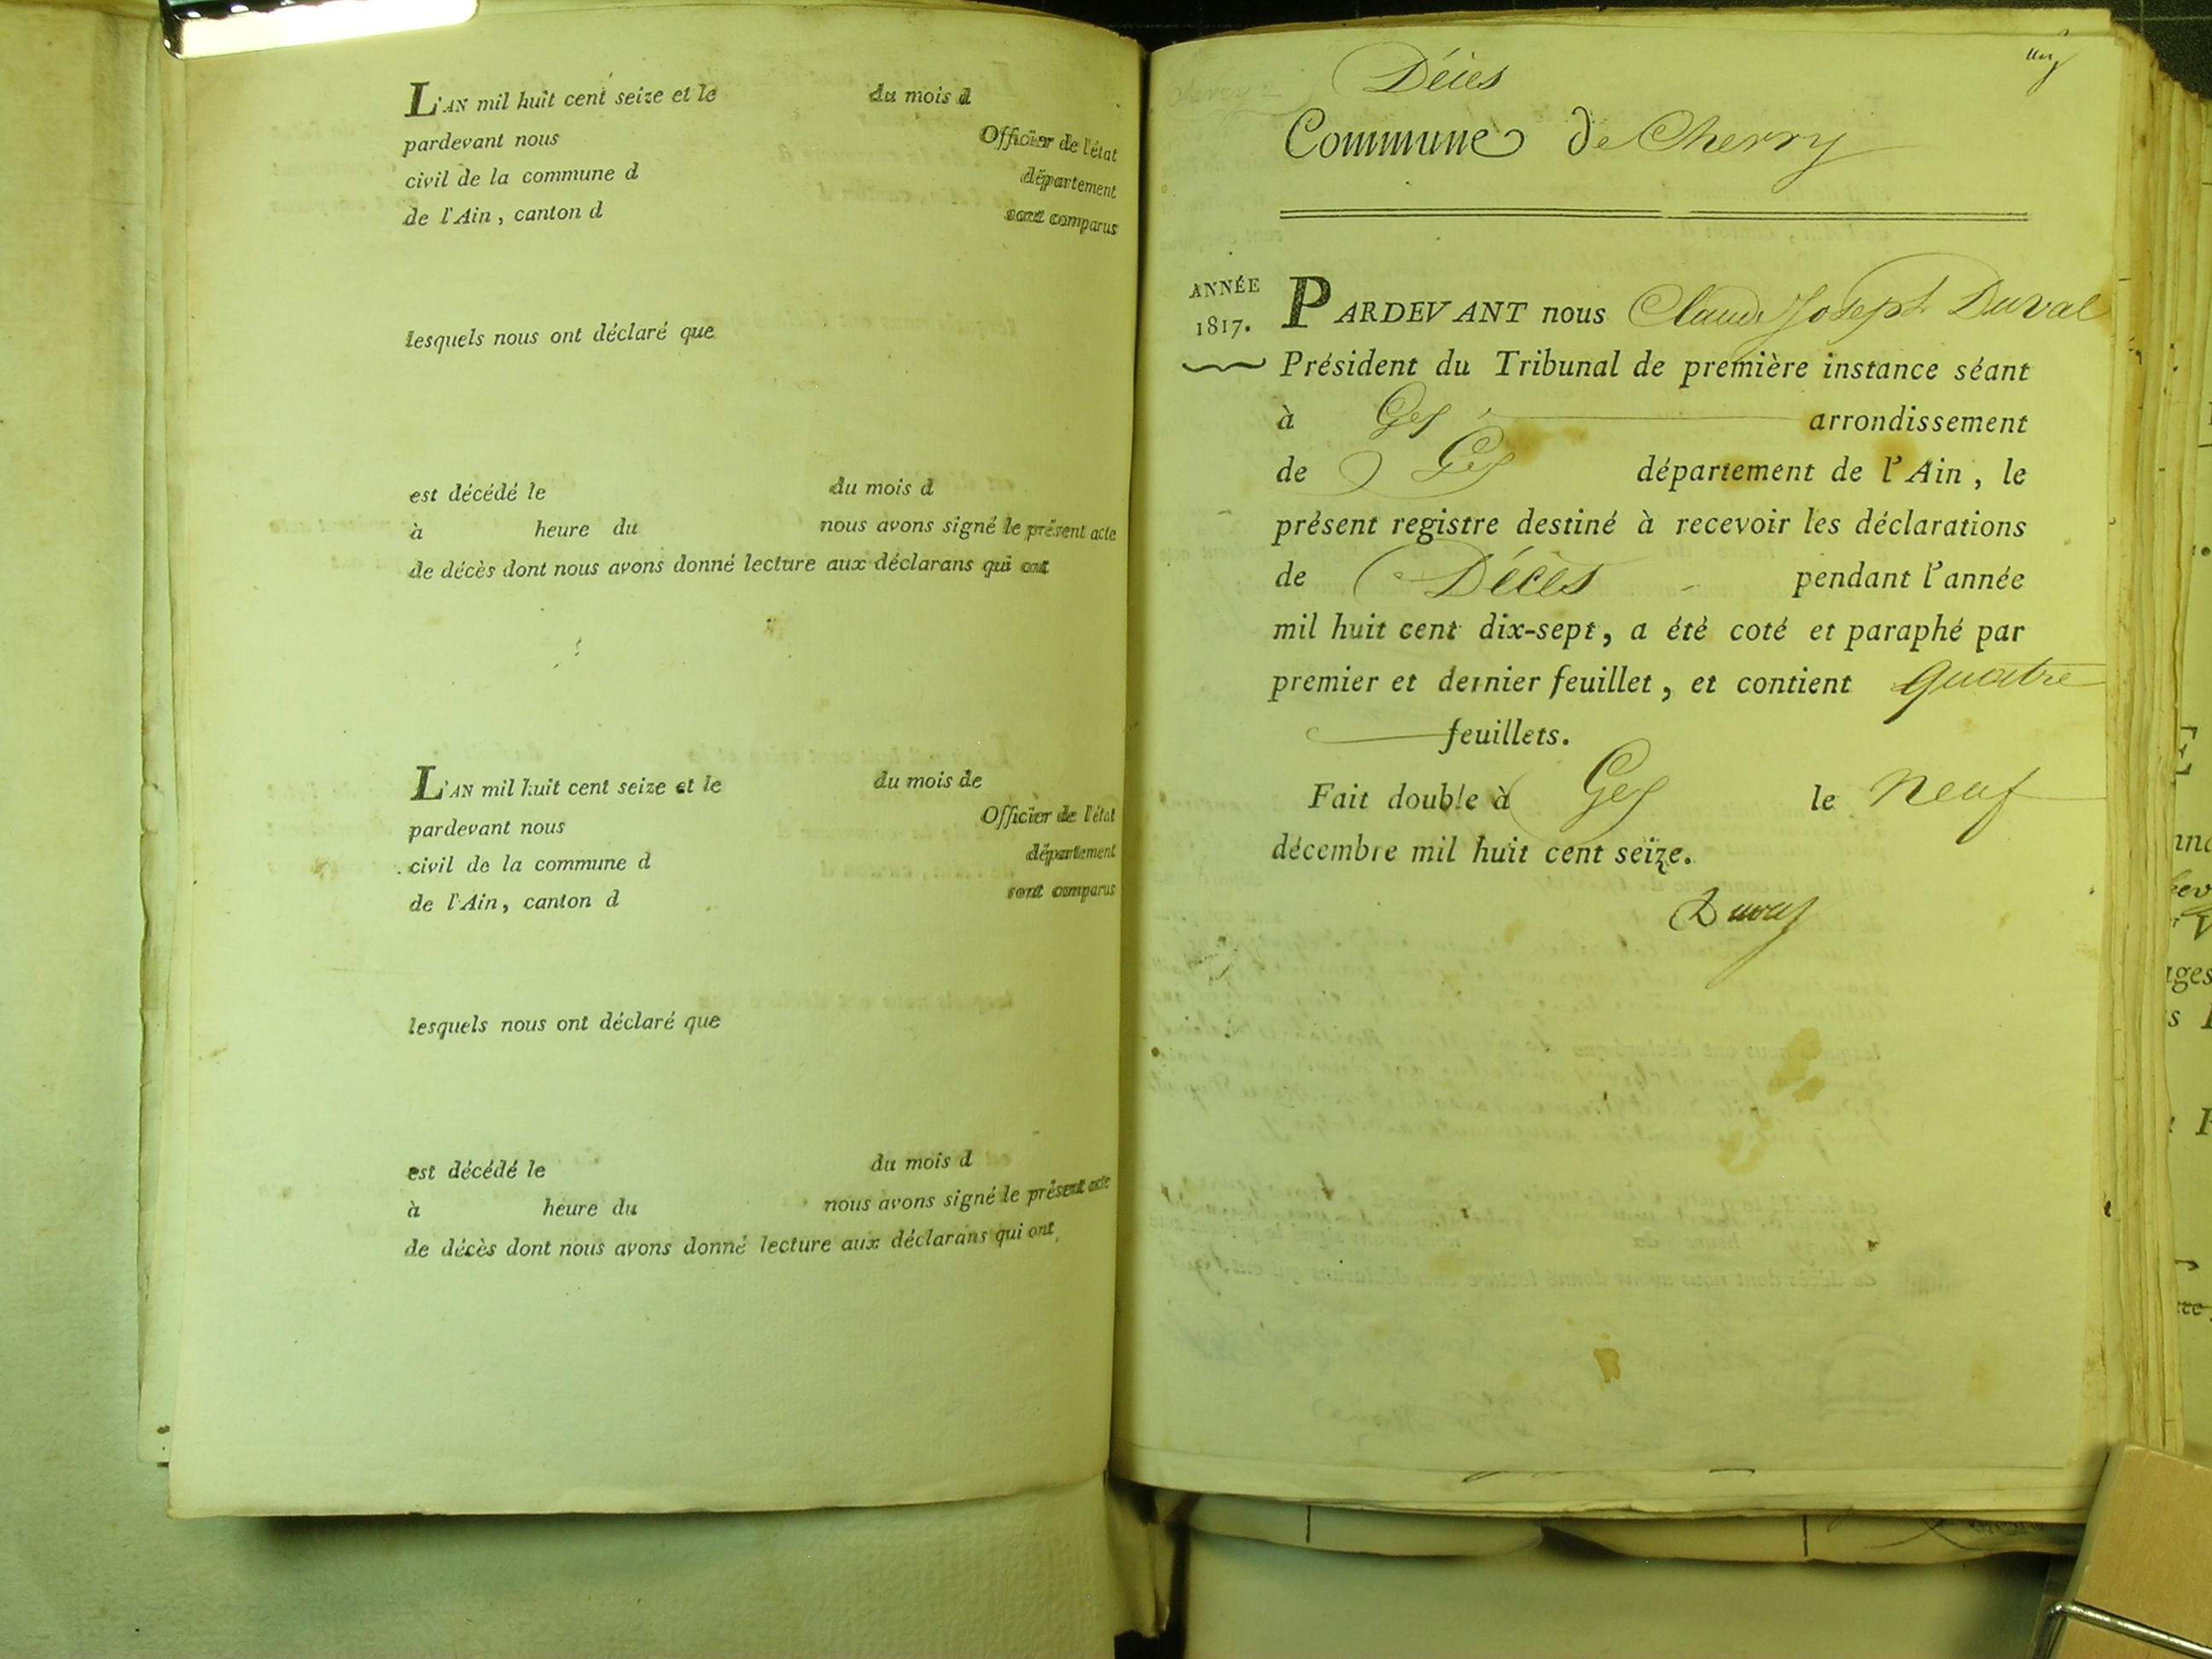 L'AN mil huit cent seize et le du mois d
pardevant nous Officier de l'état
civil de la commune d département
de l'Ain, canton d sont comparus
lesquels nous ont déclaré que
est décédé le du mois d
à heure du nous avons signé le présent acte
de décès dont nous avons donné lecture aux déclarans qui ont
L'AN mil huit cent seize et le du mois de
pardevant nous Officier de l'état
civil de la commune d département
de l'Ain, canton d sont comparus
lesquels nous ont déclaré que
est décédé le du mois d
à heure du nous avons signé le présent acte
de décès dont nous avons donné lecture aux déclarans qui ont
Décès
Commune de Chevry
ANNÉE
1817.
PARDEVANT nous Claude Joseph Duval
Président du Tribunal de première instance séant
à Gex arrondissement
de Gex département de l'Ain, le
présent registre destiné à recevoir les déclarations
de Décès pendant l'année
mil huit cent dix-sept, a été coté et paraphé par
premier et dernier feuillet, et contient quatre
feuillets.
Fait double à Gex le neuf
décembre mil huit cent seize.
Duval